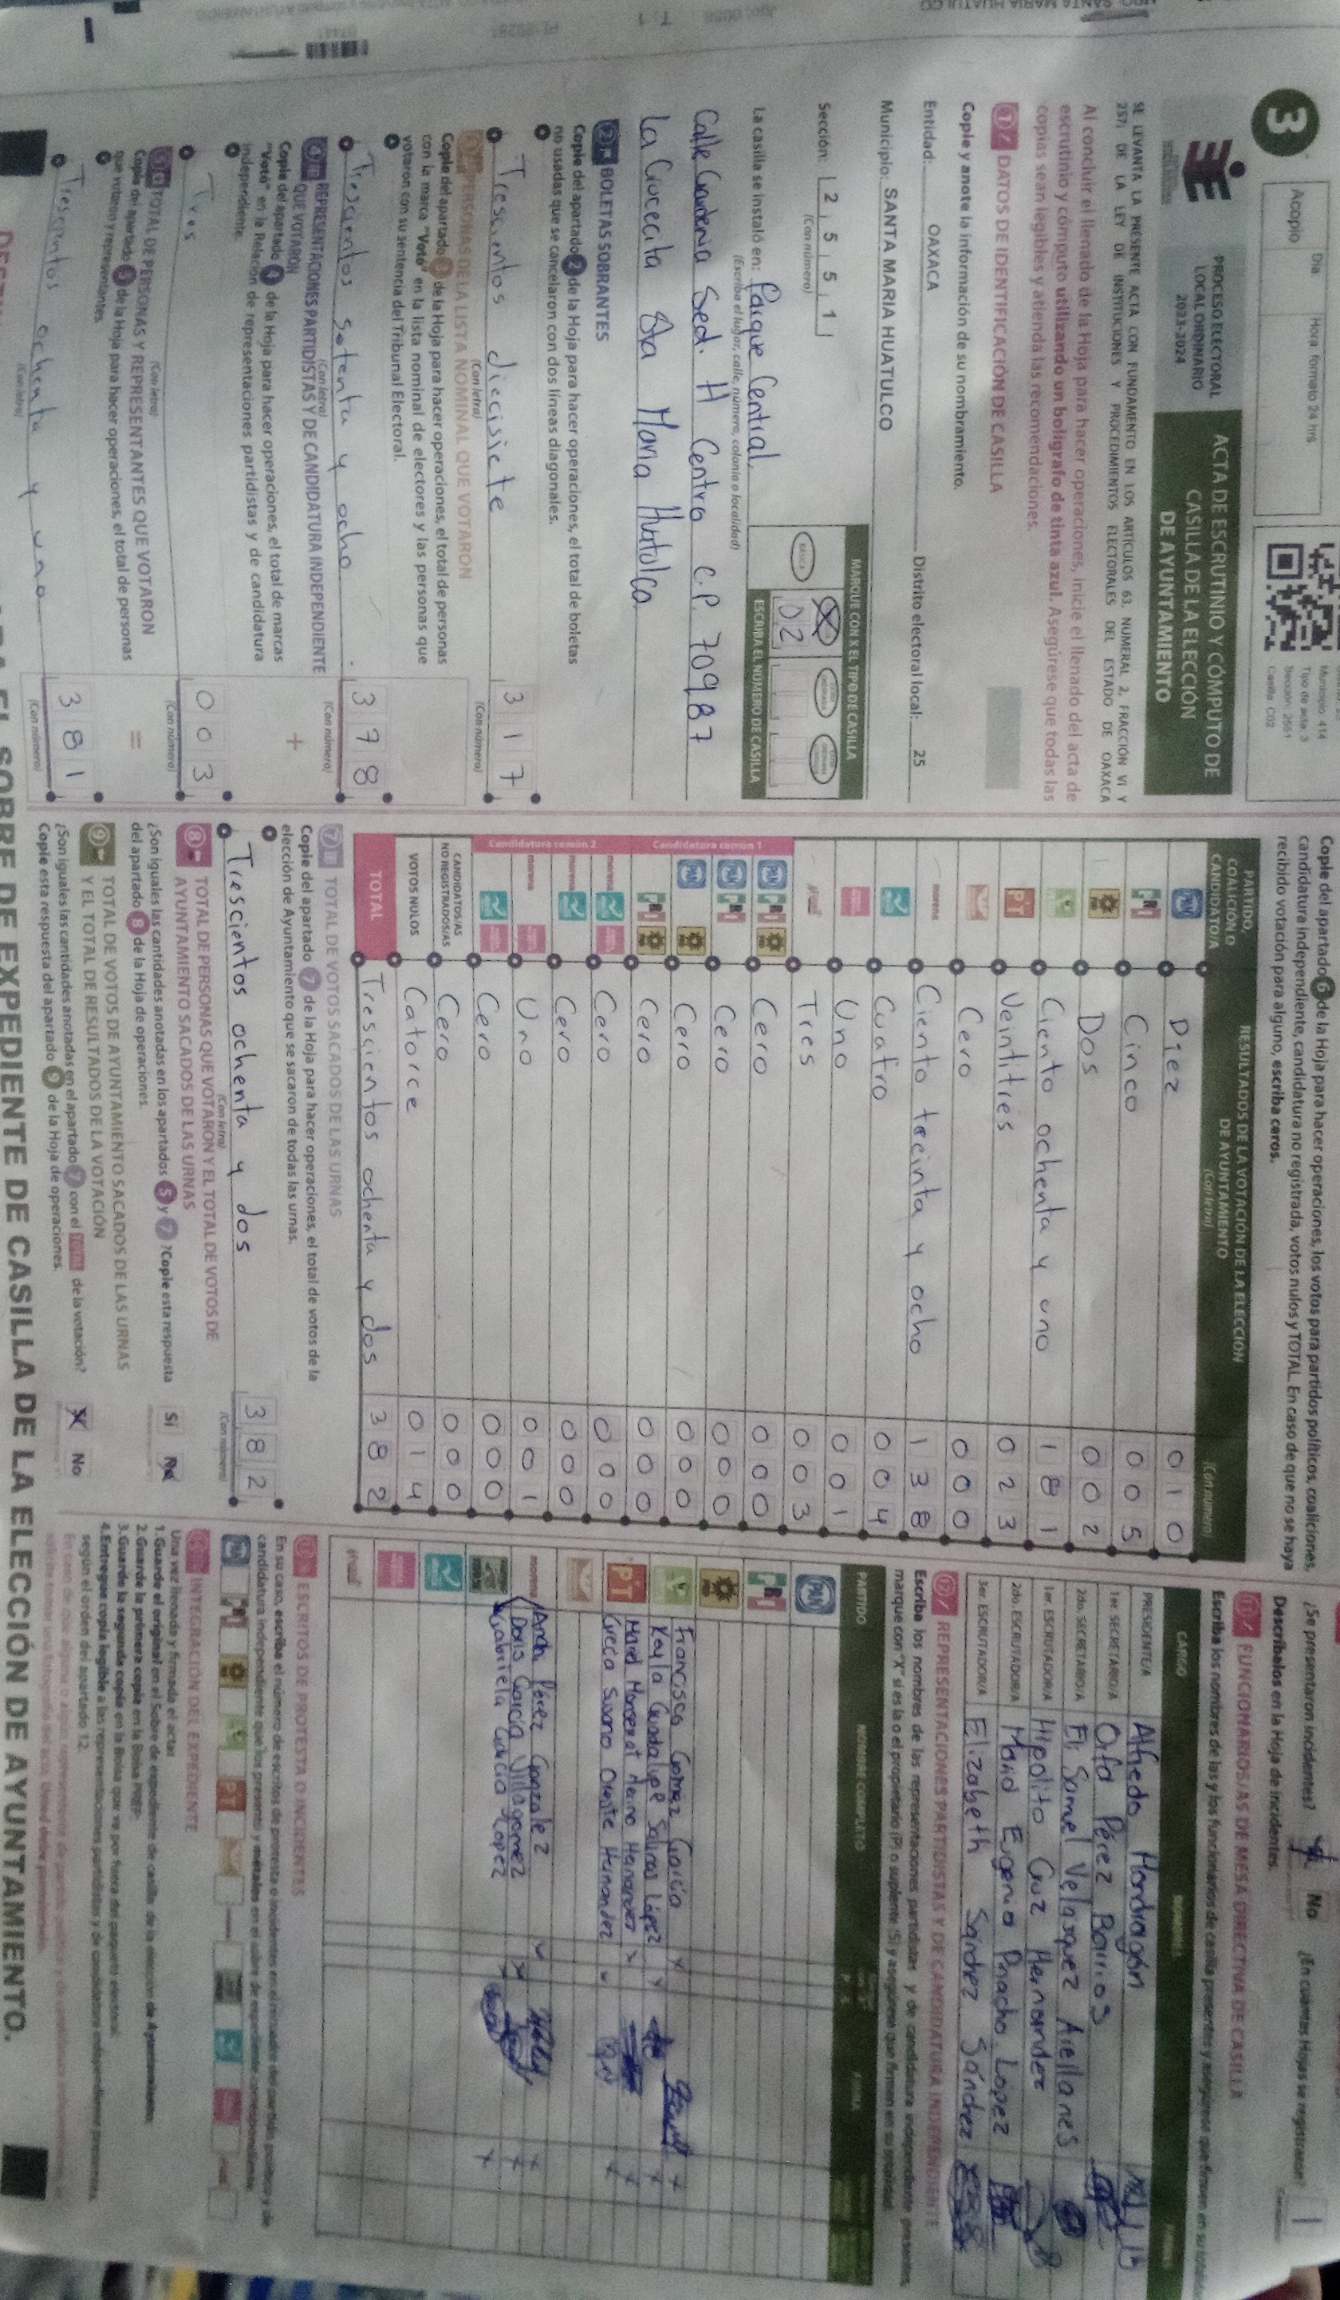 3
Acopio
Día
Hora formato 24 hrs
Municipio: 414
Tipo de acta: 3
Sección: 2551
Casilla: C02
PROCESO ELECTORAL
LOCAL ORDINARIO
2023-2024
ACTA DE ESCRUTINIO Y CÓMPUTO DE
CASILLA DE LA ELECCIÓN
DE AYUNTAMIENTO
SE LEVANTA LA PRESENTE ACTA CON FUNDAMENTO EN LOS ARTÍCULOS 63, NUMERAL 2, FRACCIÓN VI Y
257; DE LA LEY DE INSTITUCIONES Y PROCEDIMIENTOS ELECTORALES DEL ESTADO DE OAXACA
Al concluir el llenado de la Hoja para hacer operaciones, inicie el llenado del acta de
escrutinio y cómputo utilizando un bolígrafo de tinta azul. Asegúrese que todas las
copias sean legibles y atienda las recomendaciones.
1 DATOS DE IDENTIFICACIÓN DE CASILLA
Copie y anote la información de su nombramiento.
Entidad: OAXACA Distrito electoral local: 25
Municipio: SANTA MARIA HUATULCO
Sección: 2 5 5 1
(Con número)
MARQUE CON X EL TIPO DE CASILLA
BÁSICA
ESCRIBA EL NÚMERO DE CASILLA
02
La casilla se instaló en: Parque Central.
(Escriba el lugar, calle, número, colonia o localidad)
Calle Gardenia Sed. H Centro C.P. 70987
La Crucecita Sta Maria Huatulco
2 BOLETAS SOBRANTES
Copie del apartado 2 de la Hoja para hacer operaciones, el total de boletas
no usadas que se cancelaron con dos líneas diagonales.
Trescientos diecisiete 3 1 7
(Con letra) (Con número)
3 PERSONAS DE LA LISTA NOMINAL QUE VOTARON
Copie del apartado 3 de la Hoja para hacer operaciones, el total de personas
con la marca "Votó" en la lista nominal de electores y las personas que
votaron con su sentencia del Tribunal Electoral.
Trescientos setenta y ocho 3 7 8
(Con letra) (Con número)
4 REPRESENTACIONES PARTIDISTAS Y DE CANDIDATURA INDEPENDIENTE
QUE VOTARON
Copie del apartado 4 de la Hoja para hacer operaciones, el total de marcas
"Votó" en la Relación de representaciones partidistas y de candidatura
independiente.
+
Tres 0 0 3
(Con letra) (Con número)
5 TOTAL DE PERSONAS Y REPRESENTANTES QUE VOTARON
Copie del apartado 5 de la Hoja para hacer operaciones, el total de personas
que votaron y representantes.
=
Trescientos ochenta y uno 3 8 1
(Con letra) (Con número)
Copie del apartado 6 de la Hoja para hacer operaciones, los votos para partidos políticos, coaliciones,
candidatura independiente, candidatura no registrada, votos nulos y TOTAL. En caso de que no se haya
recibido votación para alguno, escriba ceros.
PARTIDO,
COALICIÓN O
CANDIDATO/A
RESULTADOS DE LA VOTACIÓN DE LA ELECCIÓN
DE AYUNTAMIENTO
(Con letra) (Con número)
PAN Diez 0 1 0
PRI Cinco 0 0 5
PRD Dos 0 0 2
Ciento ochenta y uno 1 8 1
PT Veintitres 0 2 3
Cero 0 0 0
morena Ciento treinta y ocho 1 3 8
Cuatro 0 0 4
Uno 0 0 1
Tres 0 0 3
Candidatura común 1
PAN PRI PRD Cero 0 0 0
PAN PRI Cero 0 0 0
PAN PRD Cero 0 0 0
PRI PRD Cero 0 0 0
Candidatura común 2
morena Cero 0 0 0
morena Cero 0 0 0
morena Uno 0 0 1
Cero 0 0 0
CANDIDATOS/AS
NO REGISTRADOS/AS Cero 0 0 0
VOTOS NULOS Catorce 0 1 4
TOTAL Trescientos ochenta y dos 3 8 2
7 TOTAL DE VOTOS SACADOS DE LAS URNAS
Copie del apartado 7 de la Hoja para hacer operaciones, el total de votos de la
elección de Ayuntamiento que se sacaron de todas las urnas.
Trescientos ochenta y dos 3 8 2
(Con letra) (Con número)
8 TOTAL DE PERSONAS QUE VOTARON Y EL TOTAL DE VOTOS DE
AYUNTAMIENTO SACADOS DE LAS URNAS
¿Son iguales las cantidades anotadas en los apartados 5 y 7? Copie esta respuesta
del apartado 8 de la Hoja de operaciones. Sí No
9 TOTAL DE VOTOS DE AYUNTAMIENTO SACADOS DE LAS URNAS
Y EL TOTAL DE RESULTADOS DE LA VOTACIÓN
¿Son iguales las cantidades anotadas en el apartado 7 con el TOTAL de la votación?
Copie esta respuesta del apartado 9 de la Hoja de operaciones. No
¿Se presentaron incidentes? No ¿En cuántas Hojas se registraron? 1
Descríbalos en la Hoja de incidentes.
11 FUNCIONARIOS/AS DE MESA DIRECTIVA DE CASILLA
Escriba los nombres de las y los funcionarios de casilla presentes y asegúrese que firmen en su totalidad
CARGO NOMBRES FIRMAS
PRESIDENTE/A Alfredo Mondragón
1er. SECRETARIO/A Orfa Pérez Barrios
2do. SECRETARIO/A Eli Samel Velasquez Arellanes
1er. ESCRUTADOR/A Hipolito Cruz Hernandez
2do. ESCRUTADOR/A Maid Eugenia Pinacho Lopez
3er. ESCRUTADOR/A Elizabeth Sánchez Sánchez
12 REPRESENTACIONES PARTIDISTAS Y DE CANDIDATURA INDEPENDIENTE
Escriba los nombres de las representaciones partidistas y de candidatura independiente presentes,
marque con "X" si es la o el propietario (P) o suplente (S) y asegúrese que firmen en su totalidad.
PARTIDO NOMBRE COMPLETO FIRMA
PAN
PRI
PRD
Francisco Gomez Garcia
Kayla Guadalupe Salinas López
PT
Greca Susano Oreste Hernandez
morena
Anahi Pérez Gonzalez
Doris Garcia Villagomez
Gabriela Garcia Lopez
13 ESCRITOS DE PROTESTA O INCIDENTES
En su caso, escriba el número de escritos de protesta o incidentes en el recuadro del partido político y de
candidatura independiente que los presentó y métalos en el sobre de expediente correspondiente.
INTEGRACIÓN DEL EXPEDIENTE
Una vez llenada y firmada el acta:
1.Guarde el original en el Sobre de expediente de casilla de la elección de Ayuntamiento.
2.Guarde la primera copia en la Bolsa PREP.
3.Guarde la segunda copia en la Bolsa que va por fuera del paquete electoral.
4.Entregue copia legible a las representaciones partidistas y de candidatura independiente presentes,
según el orden del apartado 12.
SOBRE DE EXPEDIENTE DE CASILLA DE LA ELECCIÓN DE AYUNTAMIENTO.